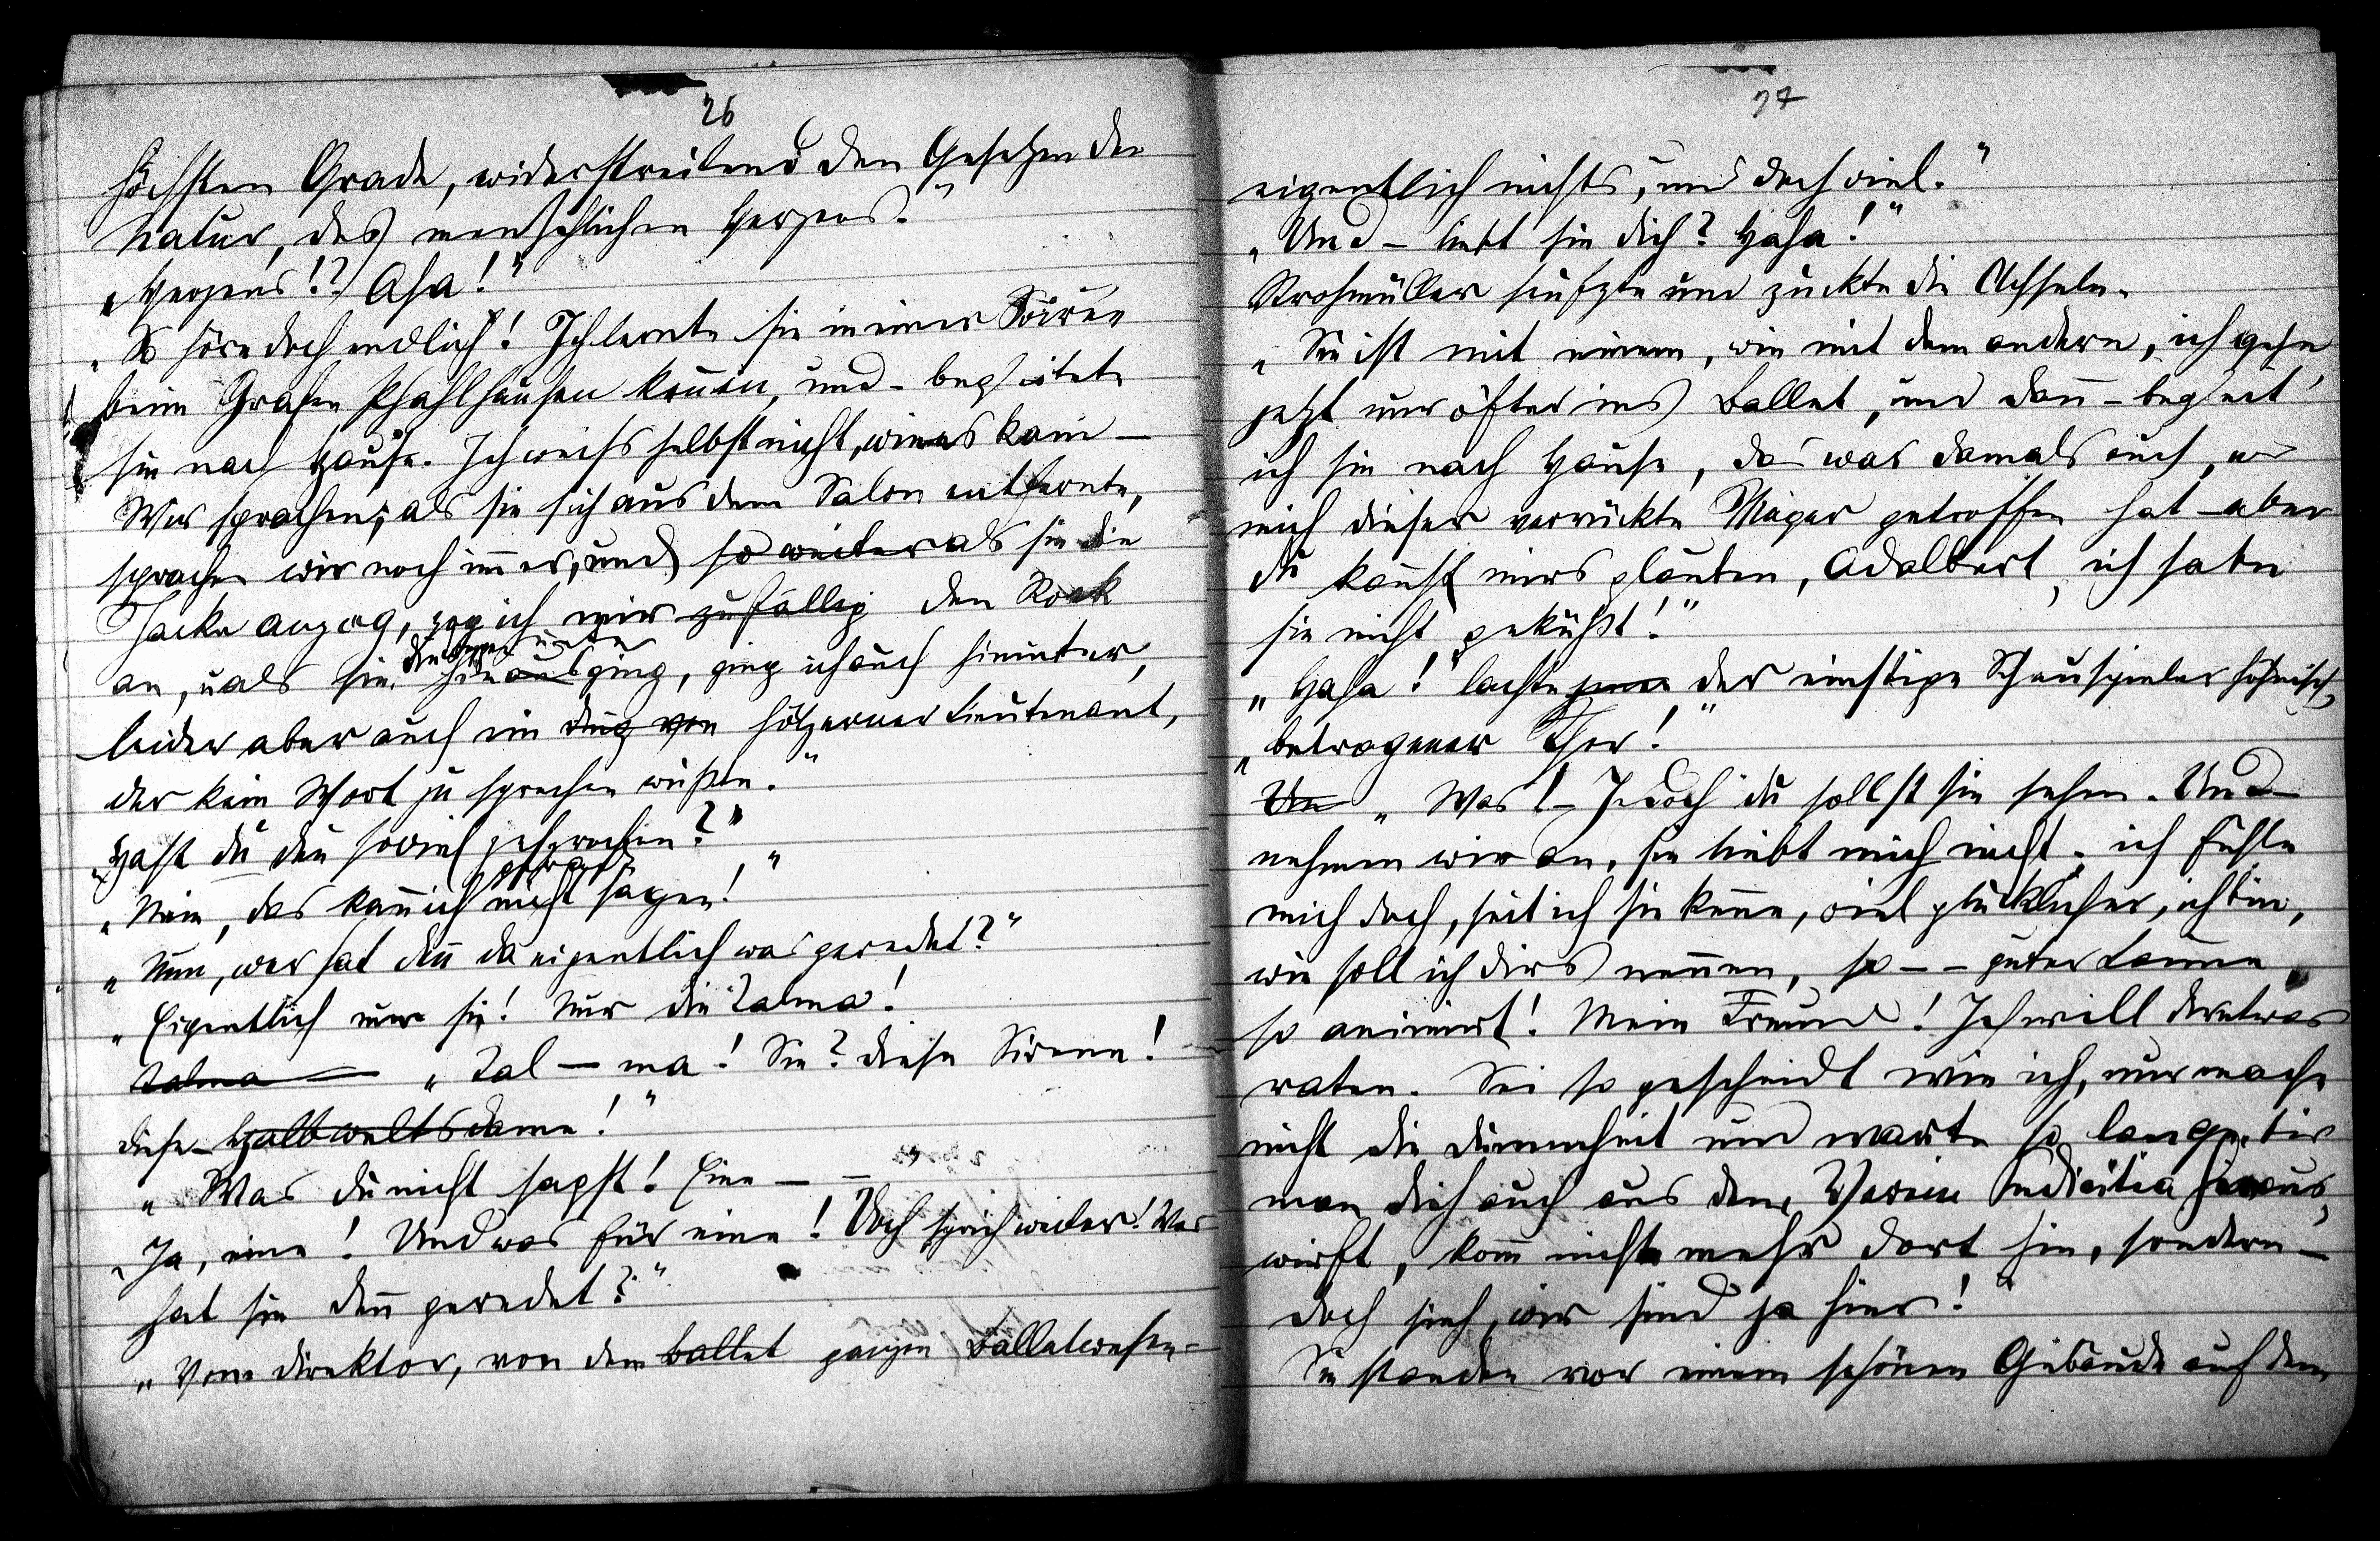 26
höchsten Grade, widerstreitend den Gesetzen der
Natur, des menschlichen Herzens."
„Herzens!? Aha!"
„So höre doch endlich! Ich lernte sie in einer Soirée
beim Grafen Pfahlhausen keñen, und – begleitete
sie nach Hause. Ich weiss selbst nicht, wie es kam –
Wir sprachen; als sie sich aus dem Salon entfernte,
sprachen wir noch im̃er, und so weiter als sie die
Jacke anzog, zog ich mir zufällig den Rock
an, u als sie hinausging, ging ich auch hinunter,
leider aber auch ein hölzerner Lieutenant,
der kein Wort zu sprechen wußte."
„Hast du deñ soviel gesprochen?"
„Nein, das kañ ich nicht gerade sagen!"
„Nun, wer hat deñ da eigentlich was geredet?"
„Eigentlich nur sie! Nur die Zalma!
Zalma – „Zal – ma! Sie? diese Sirene!
diese Halbweltsdame!"
„Was du nicht sagst! Eine – –"
„Ja, eine! Und was für eine! Doch sprich weiter! Was
hat sie deñ geredet?"
„Vom Direktor, von dem ballet ganzen Balletwesen –
74
eigentlich nichts, und doch viel."
„Und – liebt sie dich? Haha!"
Strohmüller seufzte und zuckte die Achseln.
„Sie ist mit einem, wie mit dem andern, ich gehe
jetzt nur öfter ins Ballet, und dañ – begleit'
ich sie nach Hause, das war damals auch, wo
mich dieser verrückte Mayer getroffen hat – aber
du kañst mirs glauben, Adalbert, ich habe
sie nicht geküßt!"
„Haha!" lachte jener der einstige Schauspieler höhnisch,
„betrogener Thor!"
Un „Was! – Jedoch du sollst sie sehen. Und
nehmen wir an, sie liebt mich nicht – ich fühle
mich doch, seit ich sie keñe, viel glücklicher, ich bin,
wie soll ich dirs neñen, so – – guter Laune
so animirt! Mein Freund! Ich will dir etwas
raten. Sei so gescheidt wie ich, nur mache
nicht die Dummheit und warte so lange, bis
man dich auch aus dem Verein Pudicitia heraus
wirft, kom̃ nicht mehr dort hin, sondern –
doch sieh, wir sind ja hier!"
Sie standen vor einem schönen Gebäude auf dem